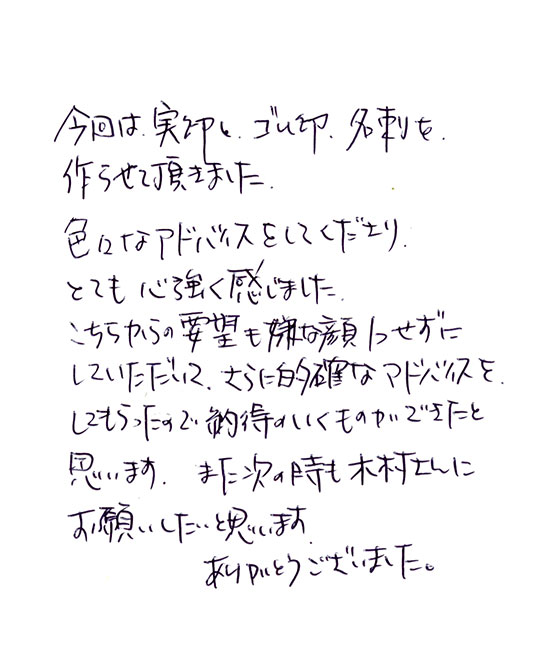 今回は、実印と、ゴム印、名刺を、
作らせて頂きました。
色々なアドバイスをしてくださり、
とても心強く感じました。
こちらからの要望も嫌な顔1つせずに
していただいて、さらに的確なアドバイスを、
してもらったので納得のいくものができたと
思います。また次の時も木村さんに
お願いしたいと思います。
ありがとうございました。